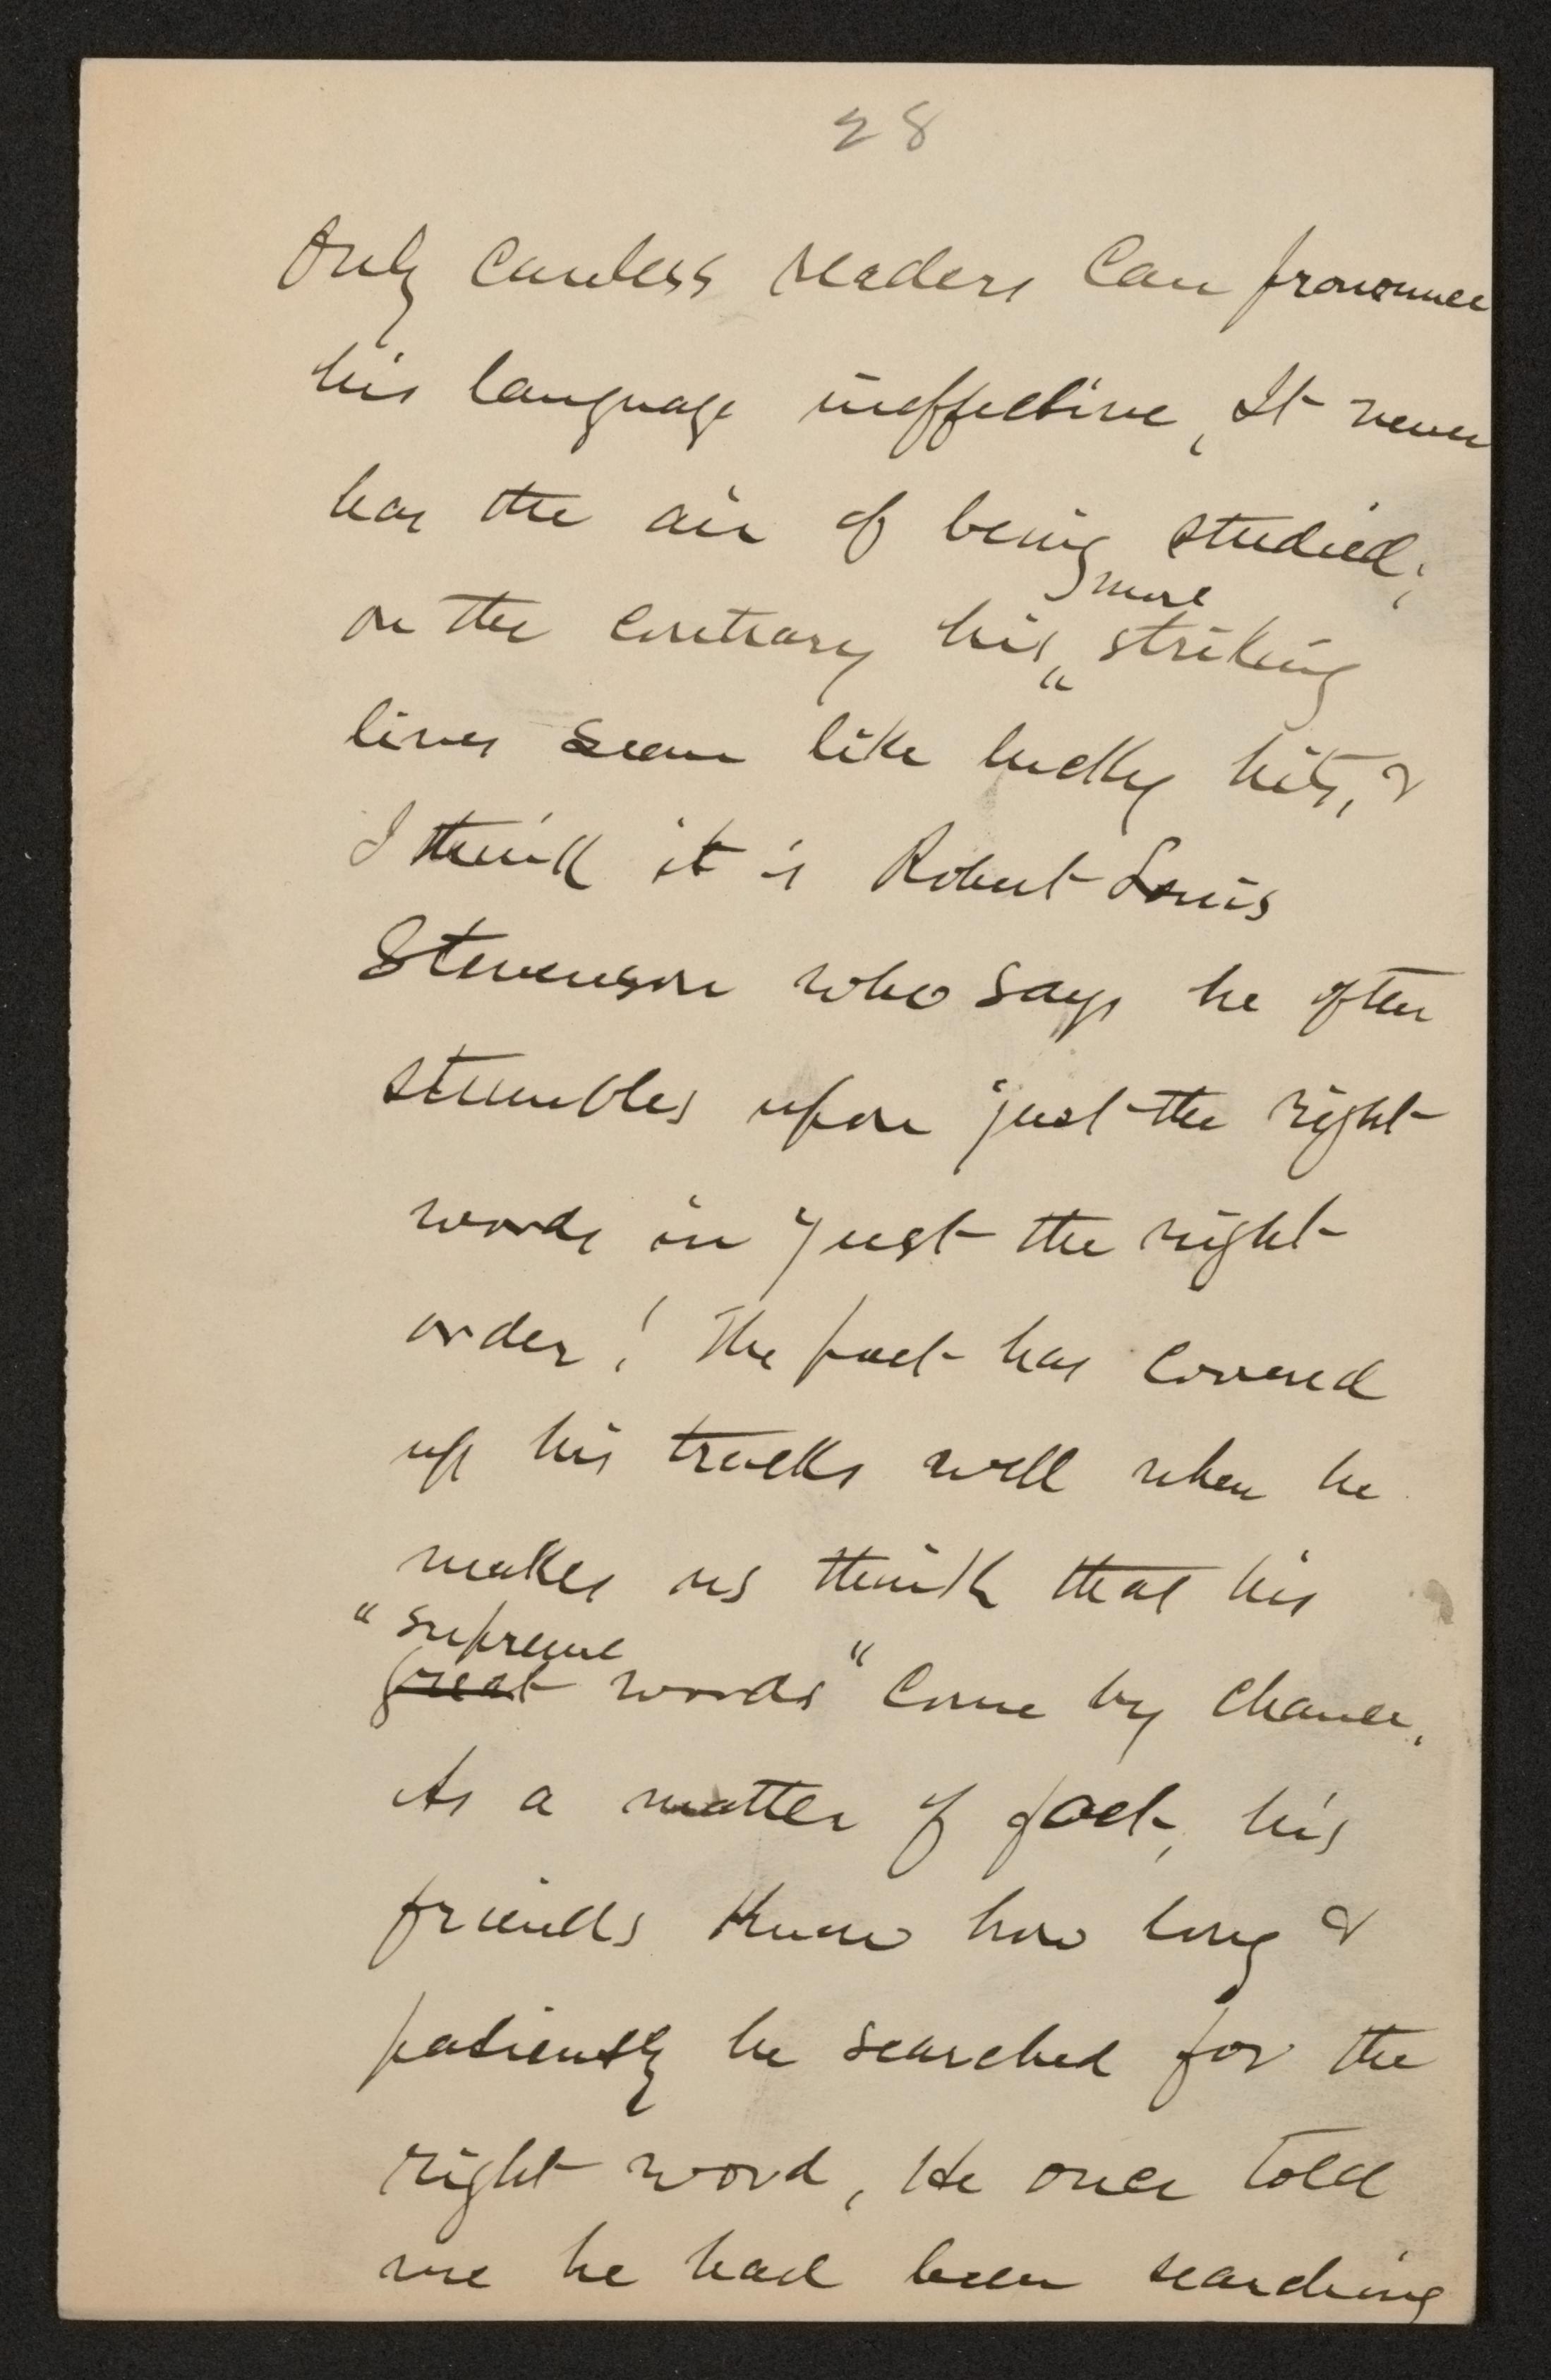 28
Only careless readers can pronounce
his language ineffective, It never
has the air of being studied;
more
on the contrary his striking
lines seem like lucky hits, &
I think it is Robert Louis
Stevenson who says he often
stumbles upon just the right
words in just the right
order! The poet has covered
up his tracks well when he
makes us think that his
"supreme
great words" come by chance.
As a matter of fact, his
friends know how long &
patiently he searched for the
right word, He once told
me he had been searching